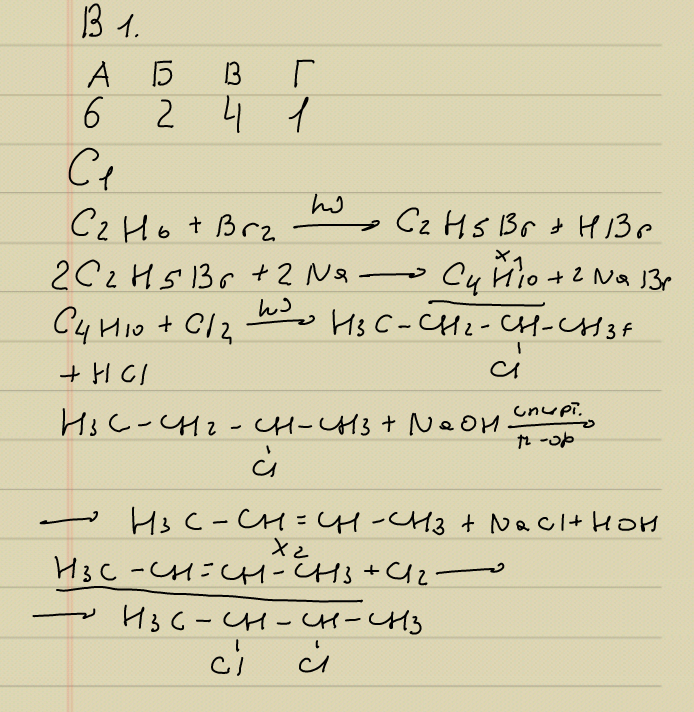 В 1.
А Б В Г
6 2 4 1
C1
C2H6 + Br2 —hν→ C2H5Br + HBr
2C2H5Br + 2Na → C4H10 + 2NaBr
x1
C4H10 + Cl2 —hν→ H3C-CH2-CH-CH3+
Cl
+ HCl
H3C-CH2-CH-CH3 + NaOH —спирт. р-ор→
Cl
→ H3C-CH=CH-CH3 + NaCl + HOH
x2
H3C-CH=CH-CH3 + Cl2 →
→ H3C-CH-CH-CH3
Cl Cl